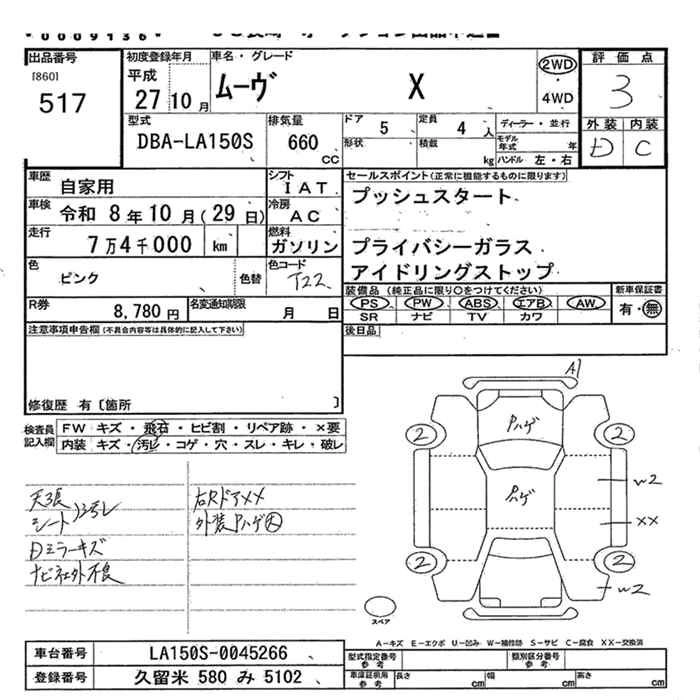 00009136
出品番号
[860]
517
初度登録年月
平成
27年10月
車名・グレード
ムーヴ X
2WD
4WD
評価点
3
外装 内装
D C
型式
DBA-LA150S
排気量
660 cc
ドア 5
形状
定員 4 人
積載 kg
ディーラー・並行
モデル年式 年
ハンドル 左・右
車歴 自家用
シフト IAT
車検 令和 8年10月(29日)
冷房 AC
走行 7万4千000 km
燃料 ガソリン
色 ピンク 色替
色コード T22
R券 8,780円
名変通知期限 月 日
セールスポイント(正常に機能するものに限ります)
プッシュスタート
プライバシーガラス
アイドリングストップ
装備品(純正品に限り○をつけてください)
PS PW ABS エアB AW
SR ナビ TV カワ
新車保証書
有・無
後日品
注意事項申告欄(不具合内容等は具体的に記入して下さい)
修復歴 有〔箇所 〕
検査員記入欄
FW キズ・飛石・ヒビ割・リペア跡・×要
内装 キズ・汚レ・コゲ・穴・スレ・キレ・破レ
天張
シート汚レ
Dミラーキズ
ナビ社外不良
右RドアXX
外装Pハゲ大
A1
Pハゲ
Pハゲ
2
2
2
2
W2
XX
W2
スペア
A-キズ E-エクボ U-凹み W-補修跡 S-サビ C-腐食 XX-交換済
車台番号 LA150S-0045266
登録番号 久留米 580 み 5102
型式指定番号 参考
類別区分番号 参考
車庫証明用 参考
長さ cm 幅 cm 高さ cm